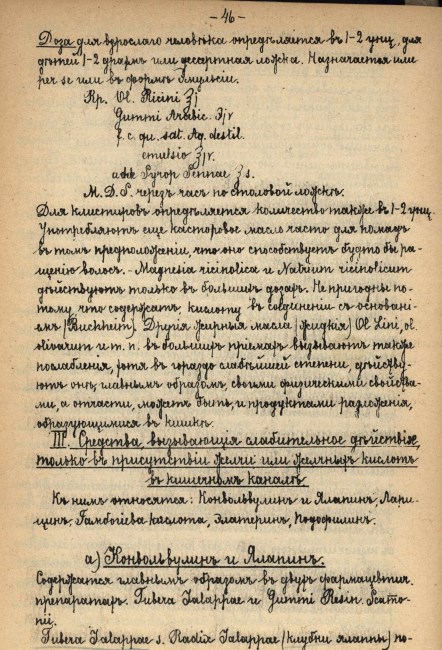 - 46 -
Доза для взрослаго человѣка опредѣляется въ 1-2 унц. для
дѣтей 1-2 драхм. или дессертная ложка. Назначается или
per se или въ формѣ эмульсіи.
Rp. Ol. Ricini ʒj
Gummi Arabic. ʒjv
f. c. qu. sat. Aq. destil.
emulsio ʒjv.
adde Syrop Sennae ʒ s.
M. D. S. черезъ часъ по столовой ложкѣ.
Для клистировъ опредѣляется количество также въ 1-2 унц.
Употребляютъ еще касторовое масло часто для помадъ
въ томъ предположеніи, что оно способствуетъ будто бы ра-
щенію волосъ. - Magnesia ricinolica и Natrum ricinolicum
дѣйствуютъ только въ большихъ дозахъ. Не пригодны по-
тому, что содержатъ кислоту въ соединеніи съ основані-
емъ (Buchheim). Другія жирныя масла (жидкія) Ol. Lini, ol.
olivarum и т. п. въ большихъ пріемахъ вызываютъ также
послабленія, хотя въ гораздо слабѣйшей степени, дѣйству-
ютъ онѣ, главнымъ образомъ, своими физическими свойства-
ми, а отчасти, можетъ быть, и продуктами разложенія,
образующимися въ кишкѣ.
III. Средства вызывающія слабительное дѣйствіе,
только въ присутствіи желчи или желчныхъ кислотъ
въ кишечномъ каналѣ.
Къ нимъ относятся: Конвольвулинъ и Ялапинъ, Лари-
цинъ. Гамбогіева кислота, Элатеринъ, Подофилинъ.
а) Конвольвулинъ и Ялапинъ.
Содержатся главнымъ образомъ въ двухъ фармацевтич.
препаратахъ. Tubera Jalappae и Gummi Resin. Scamo-
nii.
Tubera Jalappae s. Radix Jalappae (клубни ялаппы) по-